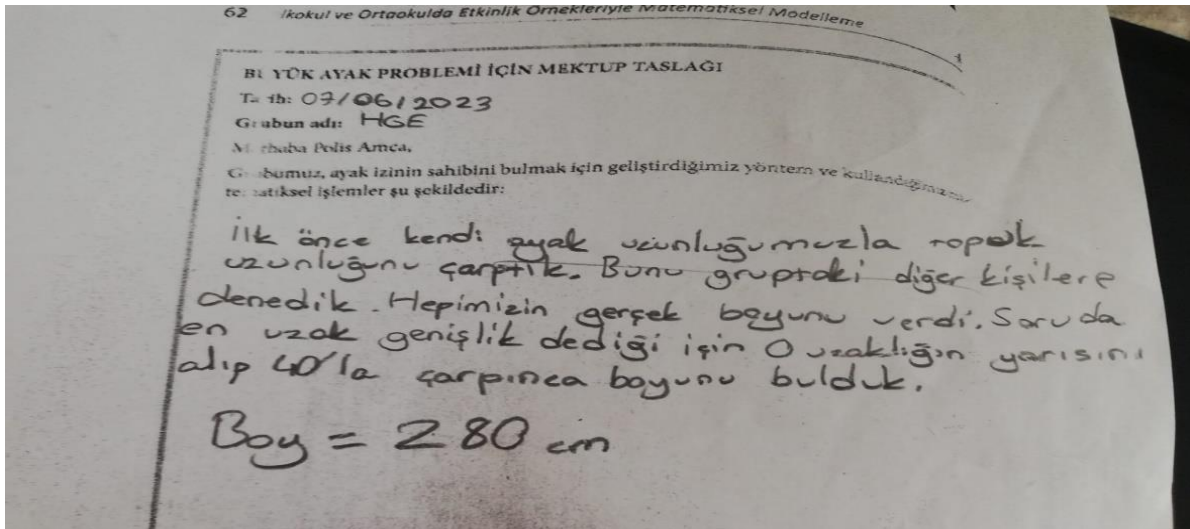 62 lkokul ve Ortaokulda Etkinlik Örnekleriyle Matematiksel Modelleme
BÜYÜK AYAK PROBLEMİ İÇİN MEKTUP TASLAĞI
Tarih: 07/06/2023
Grubun adı: HGE
Merhaba Polis Amca,
Grubumuz, ayak izinin sahibini bulmak için geliştirdiğimiz yöntem ve kullandığımız
matematiksel işlemler şu şekildedir:
İlk önce kendi ayak uzunluğumuzla topuk
uzunluğunu çarptık. Bunu gruptaki diğer kişilere
denedik. Hepimizin gerçek boyunu verdi. Soruda
en uzak genişlik dediği için O uzaklığın yarısını
alıp 40'la çarpınca boyunu bulduk.
Boy = 280 cm